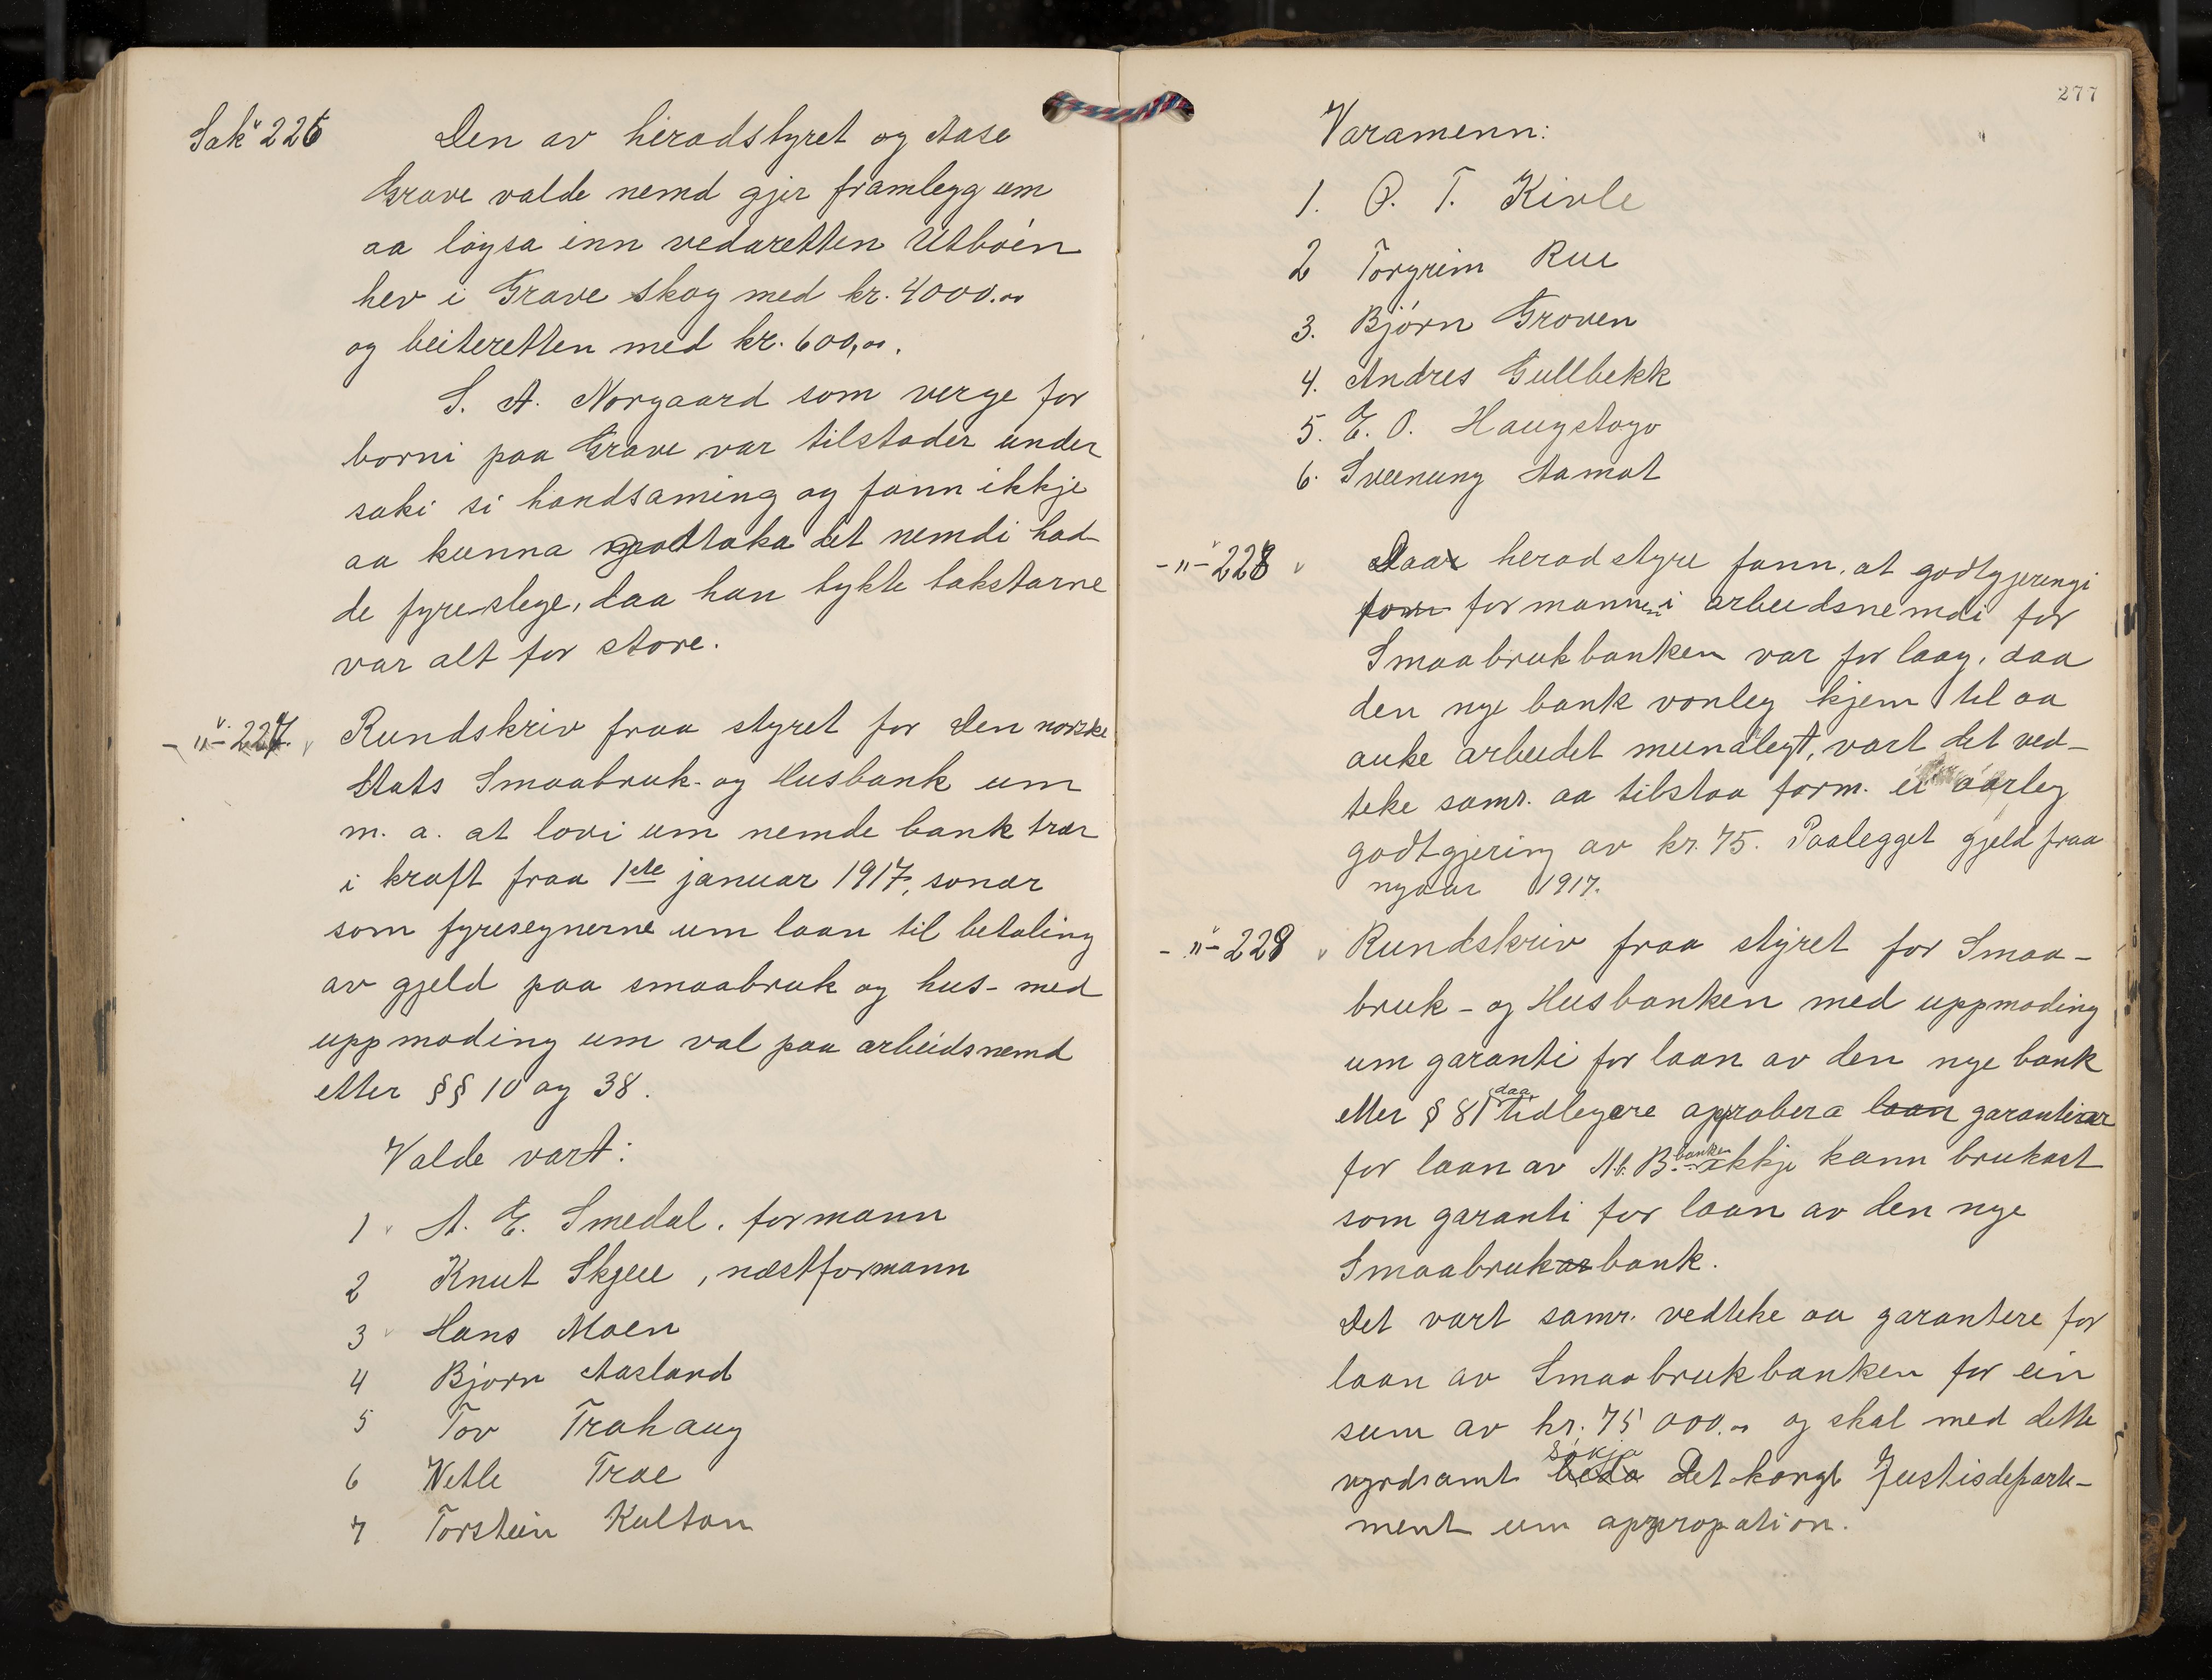 Sak 226 Den av heradstyret og Aase
Grave valde nemd gjer framlegg um
aa løysa inn vedaretten Utbøen
hev i Grave skog med kr. 4000.00
og beiteretten med kr. 600,00.
S. A. Norgaard som verge for
borni paa Grave var tilstader under
saki si handsaming og fann ikkje
aa kunna godtaka det nemdi had-
de fyreslege, daa han tykte takstarne
var alt for store.
-"- 227. Rundskriv fraa styret for Den norske
Stats Smaabruk- og Husbank um
m. a. at lovi um nemde bank trær
i kraft fraa 1ste januar 1917, sonær
som fyresegnerne um laan til betaling
av gjeld paa smaabruk og hus- med
uppmoding um val paa arbeidsnemd
etter §§ 10 og 38.
Valde vart:
1 A. E. Smedal, formann
2 Knut Skjeie, næstformann
3 Hans Moen
4 Bjørn Aasland
5 Tov Trahaug
6 Vetle Trae
7 Torstein Kultan
277
Varamenn:
1. O. T. Kivle
2 Torgrim Rue
3. Bjørn Groven
4. Andres Gullbekk
5. E. O. Haugstogo
6. Sveinung Aamot
-"- 228 Daa heradstyre fann, at godtgjeringi
form formannen i arbeidsnemdi for
Smaabrukbanken var for laag, daa
den nye bank vonleg kjem til aa
auke arbeidet mundlegt, vart det ved-
teke samr. aa tilstaa form. ei aarleg
godtgjering av kr. 75. Paalegget gjeld fraa
nyaar 1917.
-"- 229 Rundskriv fraa styret for Smaa-
bruk- og Husbanken med uppmoding
um garanti for laan av den nye bank
etter § 81 daa tidlegare approbera laan garantiar
for laan av A. b. B. banken ikkje kann brukast
som garanti for laan av den nye
Smaabrukarbank.
Det vart samr. vedteke aa garantere for
laan av Smaabrukbanken for ein
sum av kr. 75 000.00 og skal med dette
vyrdsamt beda søkja Det kongl Justisdeparte-
ment um appropation.